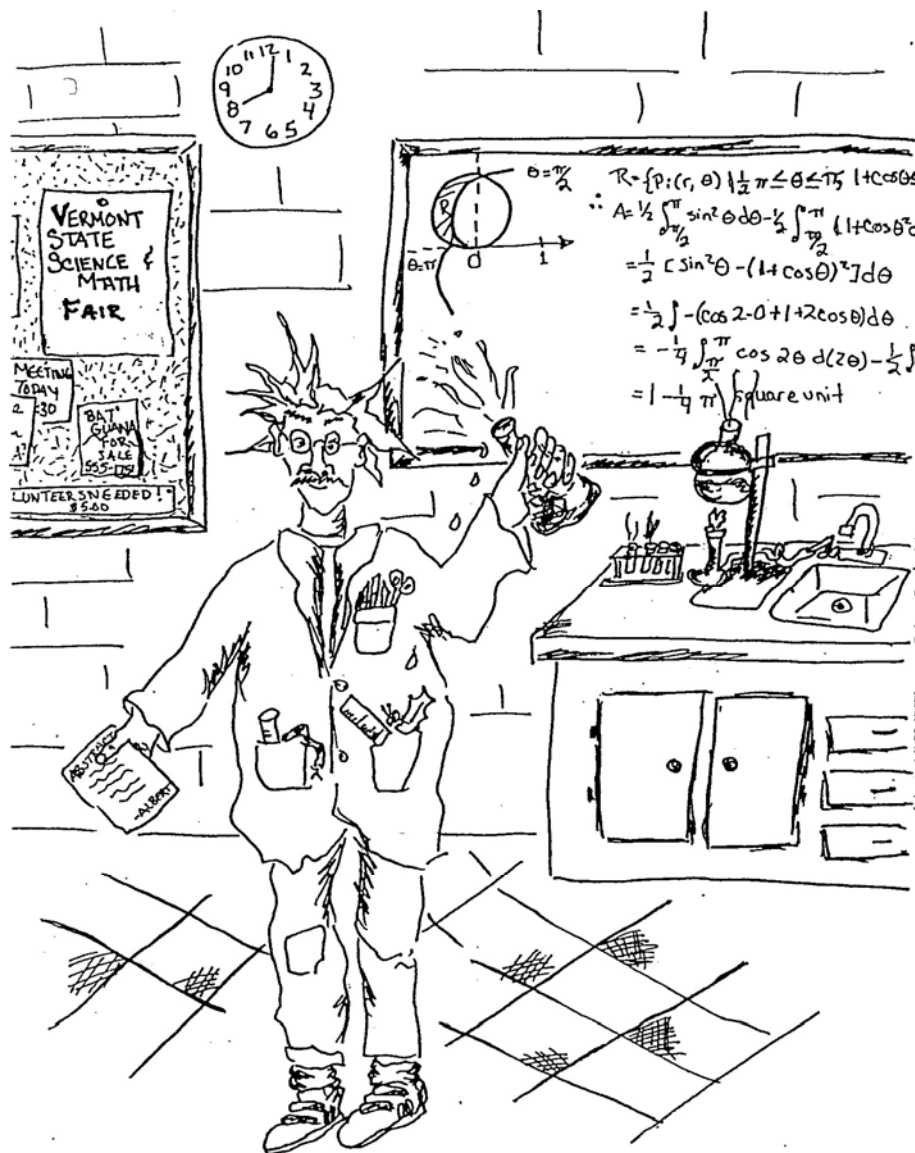 11 12 1
10 2
9 3
8 4
7 6 5
VERMONT
STATE
SCIENCE &
MATH
FAIR
MEETING
TODAY
2:30
BAT
GUANA
FOR
SALE
555-1751
LUNTEERS NEEDED!
$5.00
R
θ=π/2
θ=π
0
1
R={P:(r,θ)|½π≤θ≤π, 1+cosθ≤
∴ A=½∫π/2^π sin²θdθ-½∫π/2^π (1+cosθ²d
=½[sin²θ-(1+cosθ)²]dθ
=½∫-(cos2-0+1+2cosθ)dθ
=-¼∫π/2^π cos2θ d(2θ)-½∫
=1-¼π square unit
ABSTRACT
-ALBERT